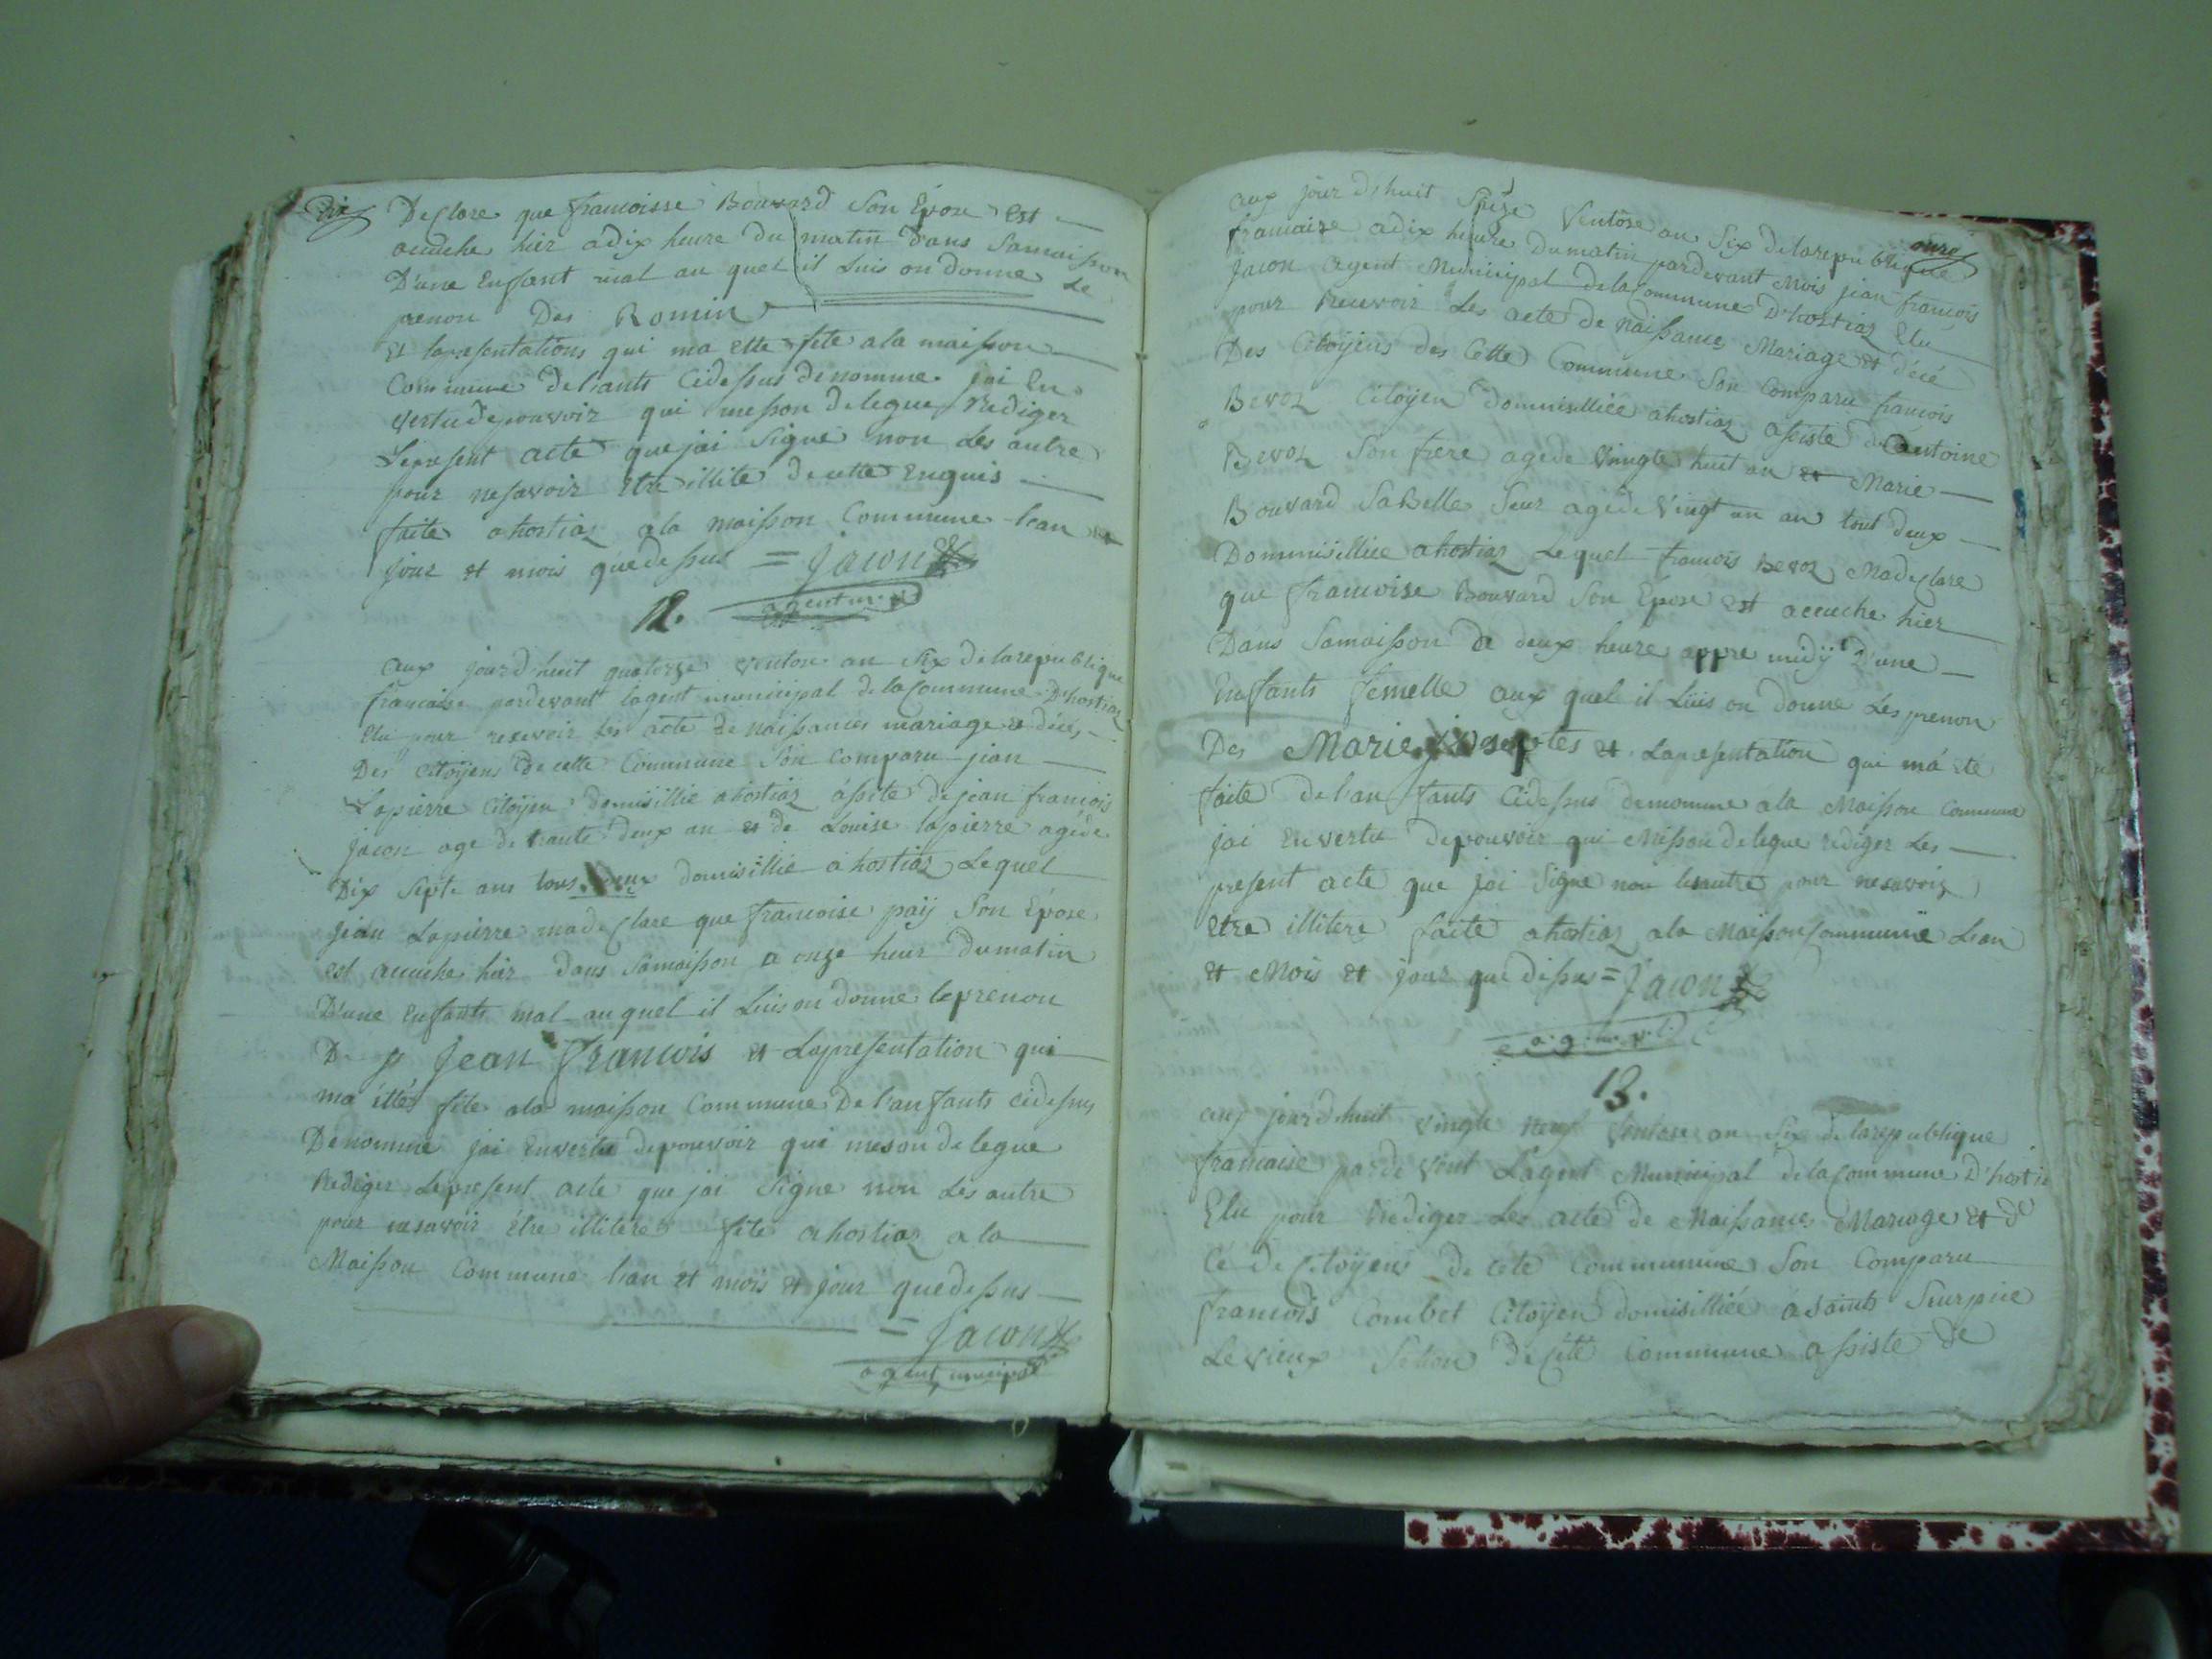 Dix
Declare que francoisse Bouvard Son Epose Est
acuuche hier adix heure du matin dans Samaisson
D'une Enfant mal au quel il Luis on donne Le
prenon Des Romin
Et lapresentations qui ma ette fete ala maisson
Commune de l'ants Cidessus denomme jai En
vertu de pouvoir qui messon delegue Rediger
Lepresent acte que jai Signe non Les autre
pour nesavoir Etre illite de cette Enquis
faite ahostiaz ala maisson Commune lean
jour et mois que dessus = jacon
agent m.
12.
aux jourdhuit quatorze ventose an Six delarepublique
francaise pardevant lagent municipal de laCommune D'hostiaz
Elu pour resevoir les acte de naissances mariage et décés
Des citoÿens de cette Commune Son Comparu jean
Lapierre Citoÿen domisillie ahostiaz assite de jean francois
jacon age de trante deux an et de Louise lapierre agéde
Dix Sept ans tous deux domisillie ahostiaz Lequel
jean Lapierre madeclare que francoise paÿ Son Epose
est acuuche hier dans Samaisson a onze heur dumatin
D'une Enfants mal auquel il Luis on donne leprenon
De jean francois et Lapresentation qui
ma étté fete ala maisson Commune De l'anfants cidessus
Denomme jai Envertu depouvoir qui meson delegue
Rediger Lepresent acte que jai Signe non Les autre
pour nesavoir Étre illitére fete ahostiaz a la
Maisson Commune lean et mois et jour que dessus
= Jacon
agent municipal
onze
aux jour dhuit Seize Ventôse an Six delarepublique
francaise adix heure Dumatin pardevant Mois jean francois
jacon agent Municipal delaCommune D'hostiaz Elu
pour Recevoir Les acte de naissances Mariage et décé
Des Citoÿens des Cette Commune Son Comparu francois
Bevoz Citoÿen dommisilliée ahostiaz assiste de antoine
Bevoz Son frere agede Vingte huit an et Marie
Bouvard SaBelle Seur agéde Vingt an an tout deux
Dommisilliée ahostiaz Lequel francois Bevoz Madeclare
que francoise Bouvard Son Epose est acuuche hier
Dans Samaisson a deux heure appre midÿ D'une
Enfants femelle aux quel il Lüis on donne Les prenon
Des Marie et Lapresentation qui má ete
faite de l'an fants Cidessus denomme ala Maisson Commune
jai En vertu depouvoir qui Messon delegue rediger Les
present acte que jai Signe non lesautre pour nesavoir
Etre illitere faite ahostiaz ala MaissonCommune Lean
et Mois et jour que dessus = Jacon
a.g.m.p.l.
13.
aux jourdhuit vingte neuf Ventose an Six de larepublique
francaise pardevent Lagent Municipal delaCommune D'hosti
Elu pour Rediger Les acte de Naissances Mariage et dé
Cé de Citoÿens de cete Commune Son Comparu
francois Combet Citoÿen domisilliée á Saints Surpice
Levieux Setion de cete Commune assiste de